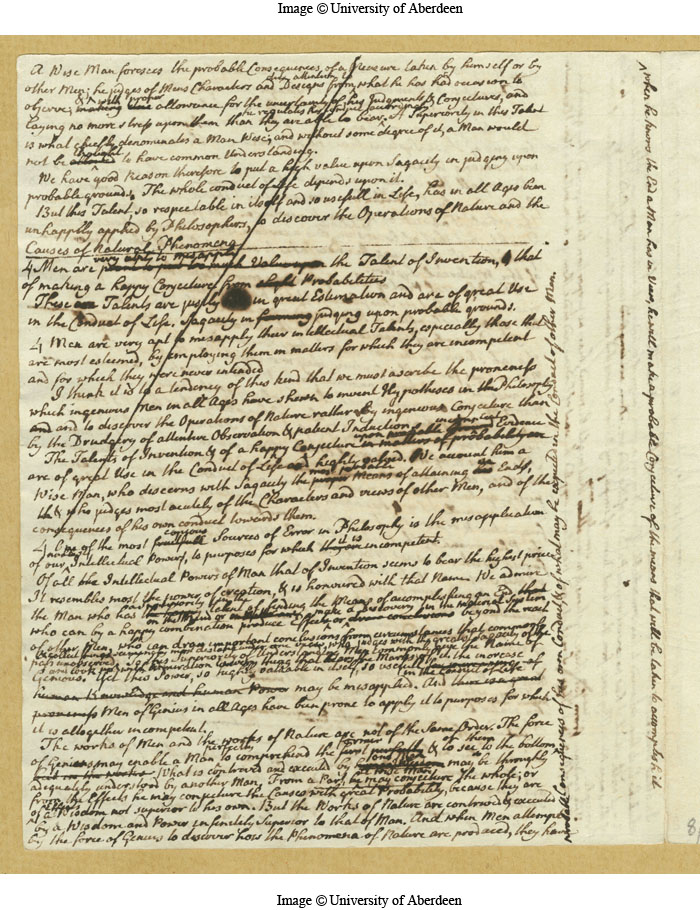 Image © University of Aberdeen
A Wise Man foresees the probable Consequences of a Measure taken by himself or by
other Men; he judges of Mens Characters and Designs from what he has had occasion to
observe; & with proper allowance for the uncertainty of his Judgments & Conjectures, and
laying no more stress upon them than they are able to bear. A Superiority in this Talent
is what chiefly denominates a Man Wise; and without some degree of it, a Man would
not be thought to have common Understanding.
We have good Reason therefore to put a high value upon Sagacity in judging upon
probable grounds. The whole conduct of Life depends upon it.
But this Talent so respectable in itself and so usefull in Life, has in all Ages been
unhappily applied by Philosophers, to discover the Operations of Nature and the
Causes of Natural Phenomena
very apt to misapply
4 Men are prone to put too much Value upon the Talent of Invention, & that
of making a happy Conjecture from slight Probabilities
These Talents are justly in great Estimation and are of great Use
in the Conduct of Life. Sagacity in forming judging upon probable grounds.
4 Men are very apt to misapply their intellectual Talents, especially those that
are most esteemed, by employing them in matters for which they are incompetent
and for which they were never intended
I think it is to a tendency of this kind that we must ascribe the proneness
which ingenious Men in all Ages have shewn to invent Hypotheses in the Philosophy
and to discover the Operations of Nature rather by ingenious Conjecture than
by the Drudgery of attentive Observation & patient Induction
The Talents of Invention & of a happy Conjecture in matters of probability are
are of great Use in the Conduct of Life and highly valued. We account him a
Wise Man, who discerns with Sagacity the proper Means of attaining his Ends,
& who judges most acutely of the Characters and views of other Men, and of the
consequences of his own conduct towards them.
4 One of the most copious Sources of Error in Philosophy is the misapplication
of our Intellectual Powers, to purposes for which they are incompetent.
Of all the Intellectual Powers of Man that of Invention seems to bear the highest price
It resembles most the power of creation, & is honoured with that Name. We admire
the Man who has talent of finding the Means of accomplishing an End that
who can by a happy combination produce Effects beyond the reach
of other Men, who can draw important conclusions from circumstances that commonly
pass unobserved
Genious. Yet this Power, so highly valuable in itself, so usefull in the Conduct of Life
human Knowledge and human Power may be misapplied. And there is a great
proneness Men of Genius in all Ages have been prone to apply it to purposes for which
it is altogether incompetent.
The works of Men and the works of Nature are not of the Same Order. The force
of Genius may enable a Man to comprehend the former perfectly & to see to the bottom
of them
What is contrived and executed by one Man may be throughly
adequately understood by another Man. From a Part, he may conjecture the whole; or
from the Effects he may conjecture the Causes with great Probability, because they are
effects of a Wisdom not superior to his own. But the Works of Nature are contrived & executed
by a Wisdom and Power infinitely Superior to that of Man. And when Men attempt
by the force of Genius to discover how the Phenomena of Nature are produced, they have
probable Consequences of his own Conduct & of what may be expected in the Conduct of other Men.
when he knows the End a Man has in View, he will make a probable Conjecture of the means that will be taken to accomplish it
8
Image © University of Aberdeen